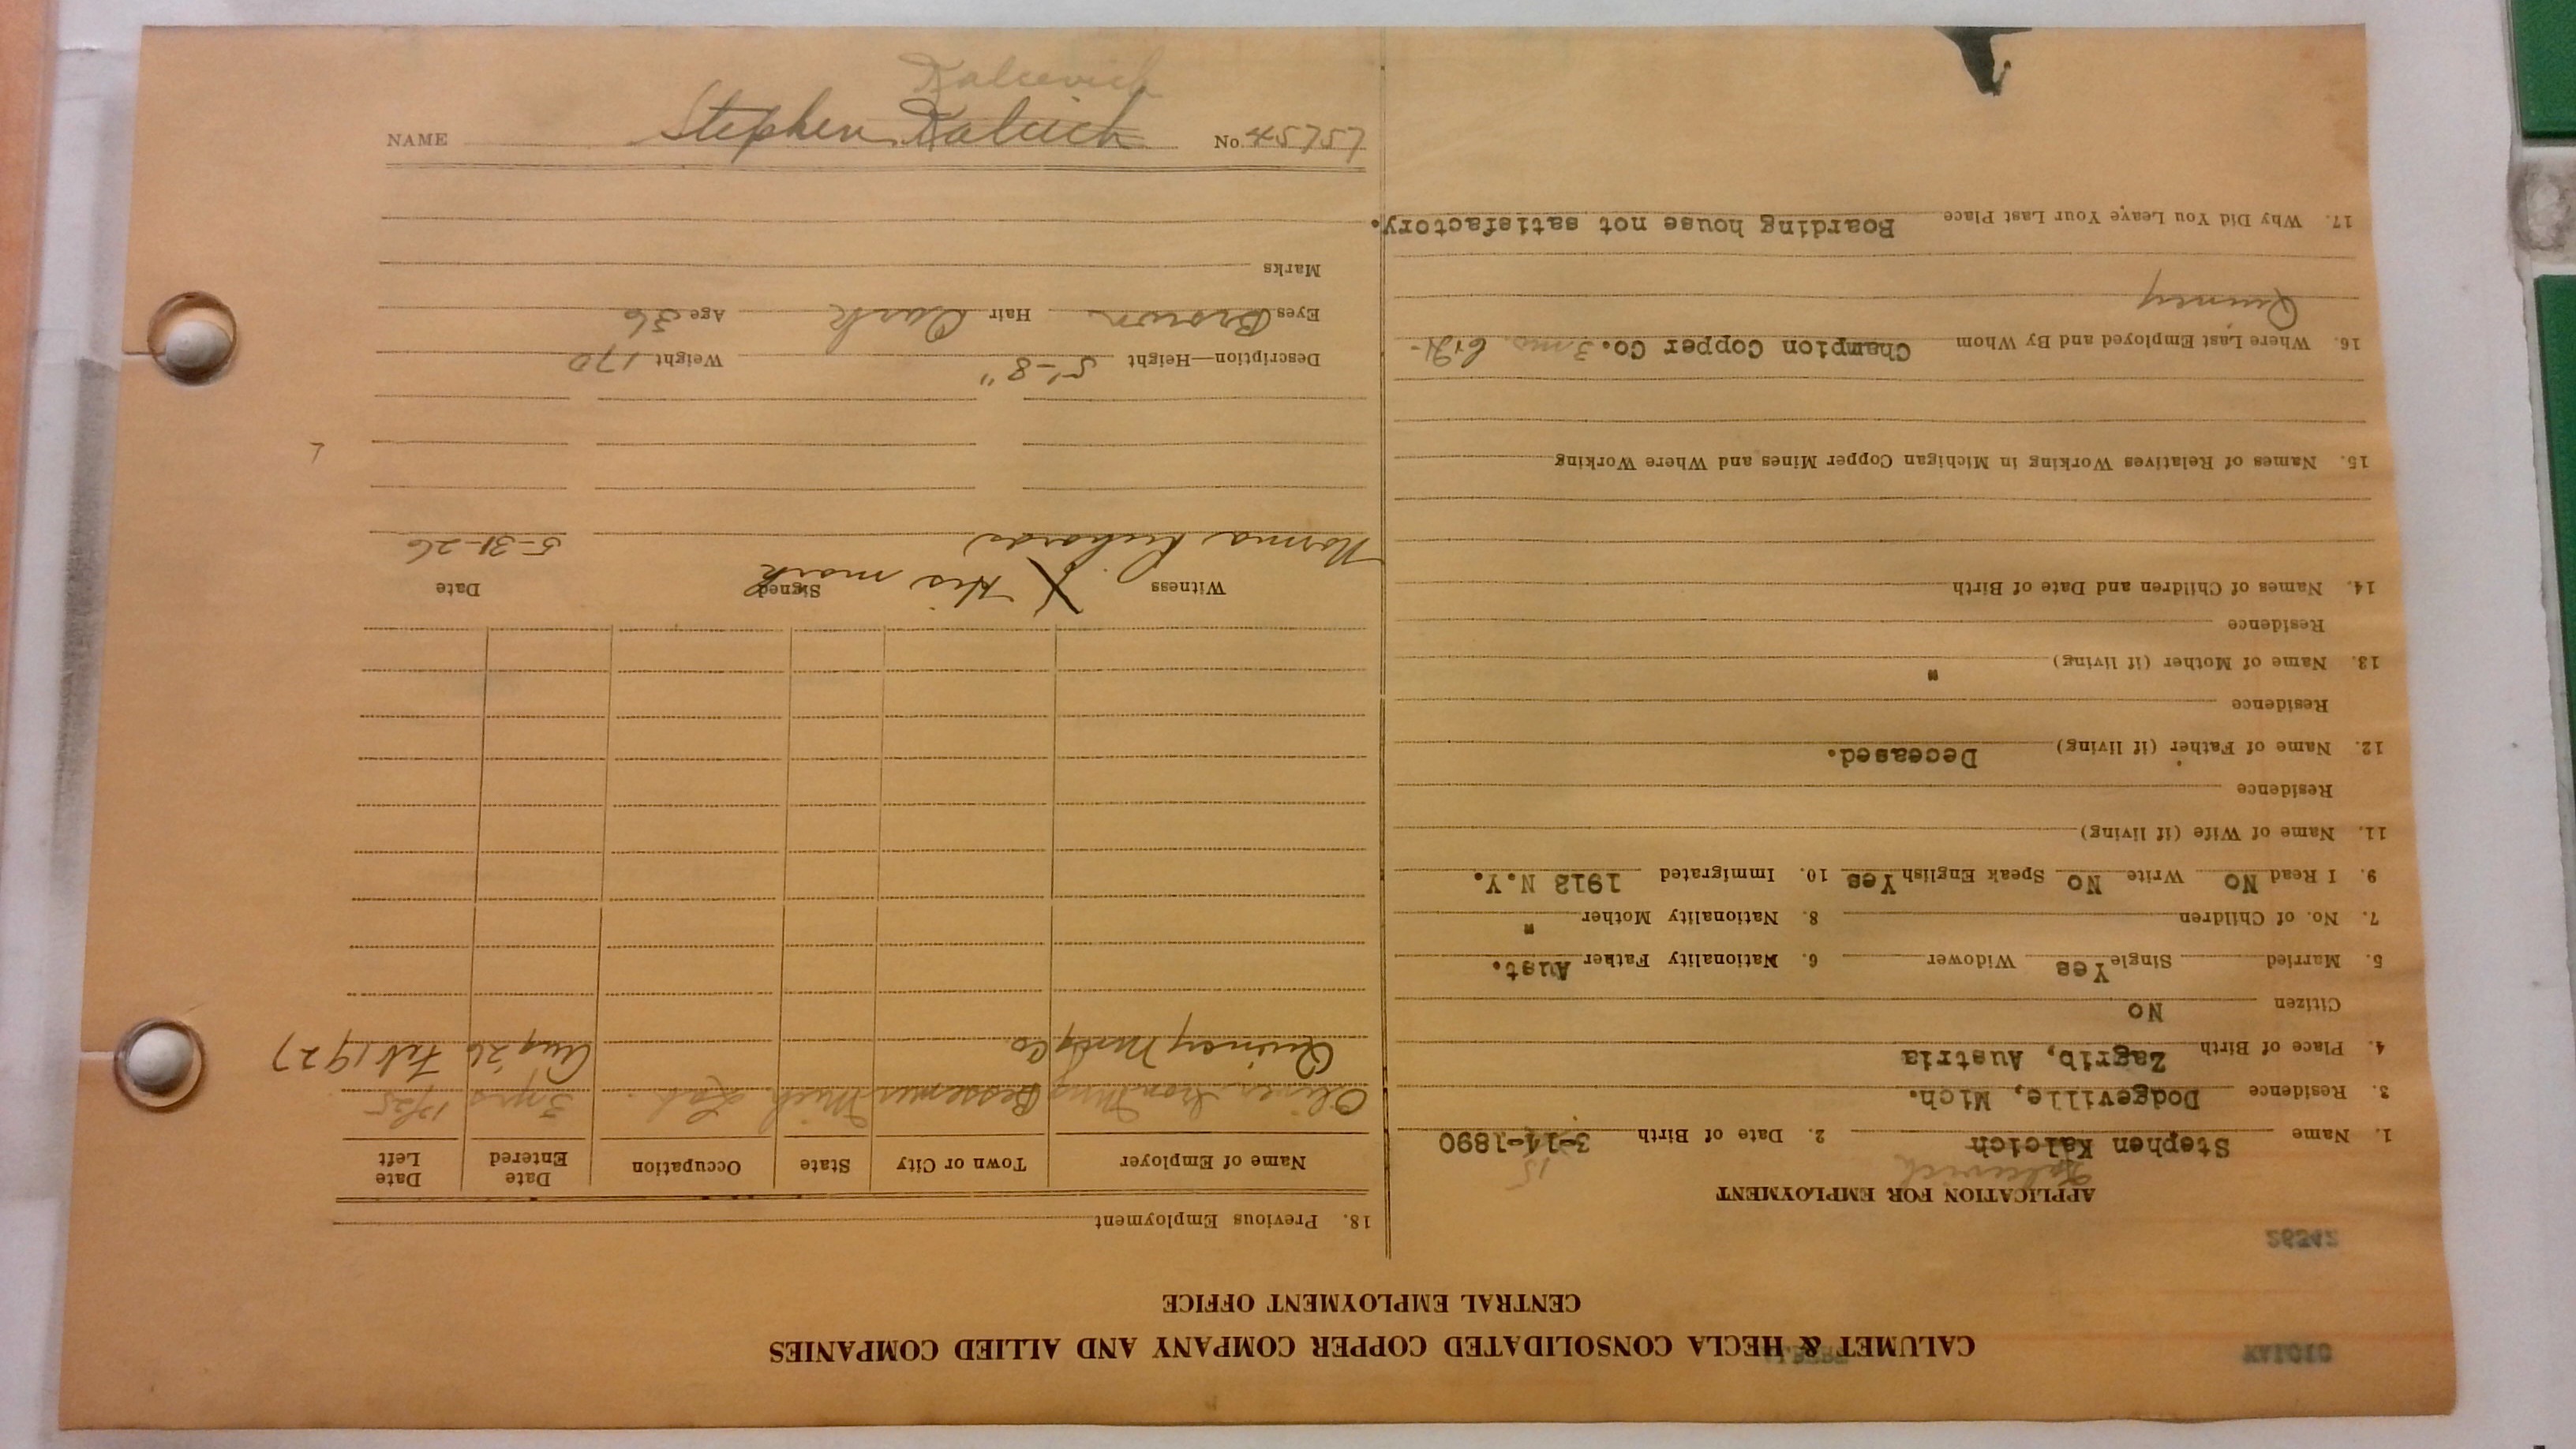 CALUMET & HECLA CONSOLIDATED COPPER COMPANY AND ALLIED COMPANIES
CENTRAL EMPLOYMENT OFFICE
26542
APPLICATION FOR EMPLOYMENT
Kalcevich 15
1. Name Stephen Kalcich 2. Date of Birth 3-14-1890
3. Residence Dodgeville, Mich.
4. Place of Birth Zagrib, Austria
Citizen No
5. Married Single Yes Widower 6. Nationality Father Aust.
7. No. of Children 8. Nationality Mother "
9. I Read No Write No Speak English Yes 10. Immigrated 1912 N.Y.
11. Name of Wife (if living)
Residence
12. Name of Father (if living) Deceased.
Residence
13. Name of Mother (if living) "
Residence
14. Names of Children and Date of Birth
15. Names of Relatives Working in Michigan Copper Mines and Where Working
16. Where Last Employed and By Whom Champion Copper Co. 3 mos.
Quincy
17. Why Did You Leave Your Last Place Boarding house not satisfactory.
18. Previous Employment
Name of Employer Town or City State Occupation Date Entered Date Left
Oliver Iron Mng Bessemer Mich Lab. 3 yrs 12/25
Quincy Mining Co Aug 26 Feb 1927
Witness Signed Date
X His mark
Norma Richards 5-31-26
Description—Height 5'-8" Weight 170
Eyes Brown Hair Dark Age 36
Marks
Kalcevich
NAME Stephen Kalcich No. 45757